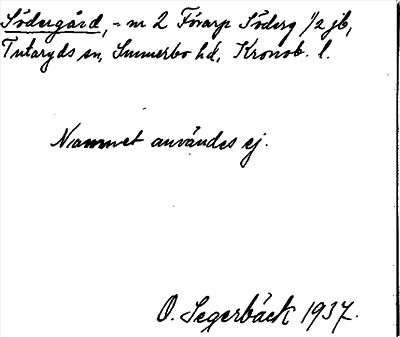 Södergård, - nr 2 Fórarp Söderg 1/2 jb,
Tutaryds sn, Sunnerbo hd, Kronob. l.
Namnet användes ej.
O. Segerbäck 1937.